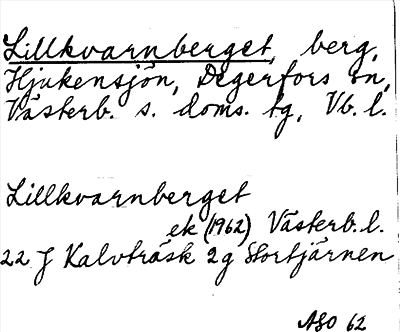 Lillkvarnberget, berg,
Hjukensjön, Degerfors sn,
Västerb. s. doms. tg, Vb. l.
Lillkvarnberget
ek (1962) Västerb. l.
22 J Kalvträsk 2g Stortjärnen
ASO 62